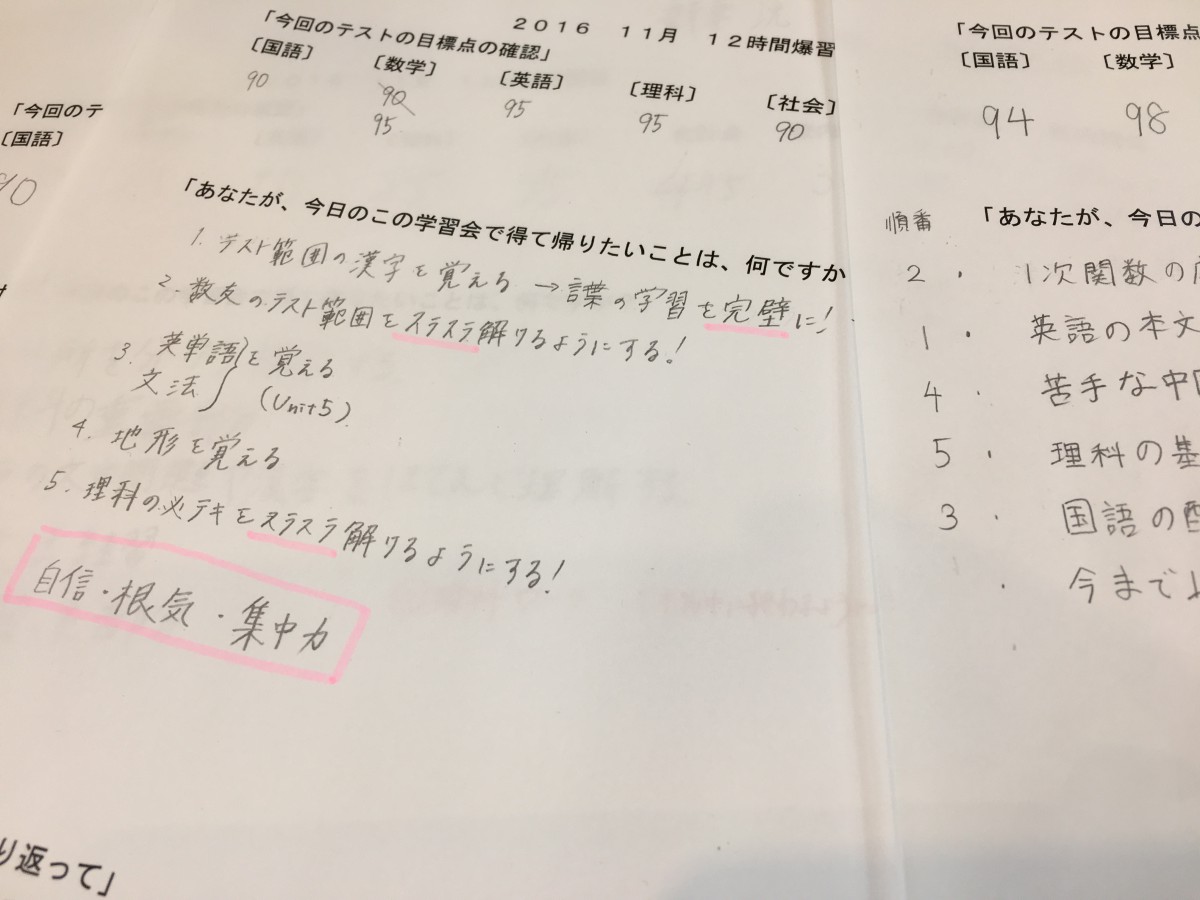 「今回のテ
〔国語〕
90
2016 11月 12時間爆習
「今回のテストの目標点の確認」
〔国語〕 〔数学〕 〔英語〕 〔理科〕 〔社会〕
90 90 95 95 90
95
「あなたが、今日のこの学習会で得て帰りたいことは、何ですか
1. テスト範囲の漢字を覚える → の学習を完璧に!
2. 数友のテスト範囲をスラスラ解けるようにする!
3. 英単語を覚える
文法 (Unit5)
4. 地形を覚える
5. 理科の必テキをスラスラ解けるようにする!
自信・根気・集中力
り返って」
「今回のテストの目標点
〔国語〕 〔数学〕
94 98
順番 「あなたが、今日の
2 ・ 1次関数の
1 ・ 英語の本文
4 ・ 苦手な中
5 ・ 理科の基
3 ・ 国語の
・ 今まで